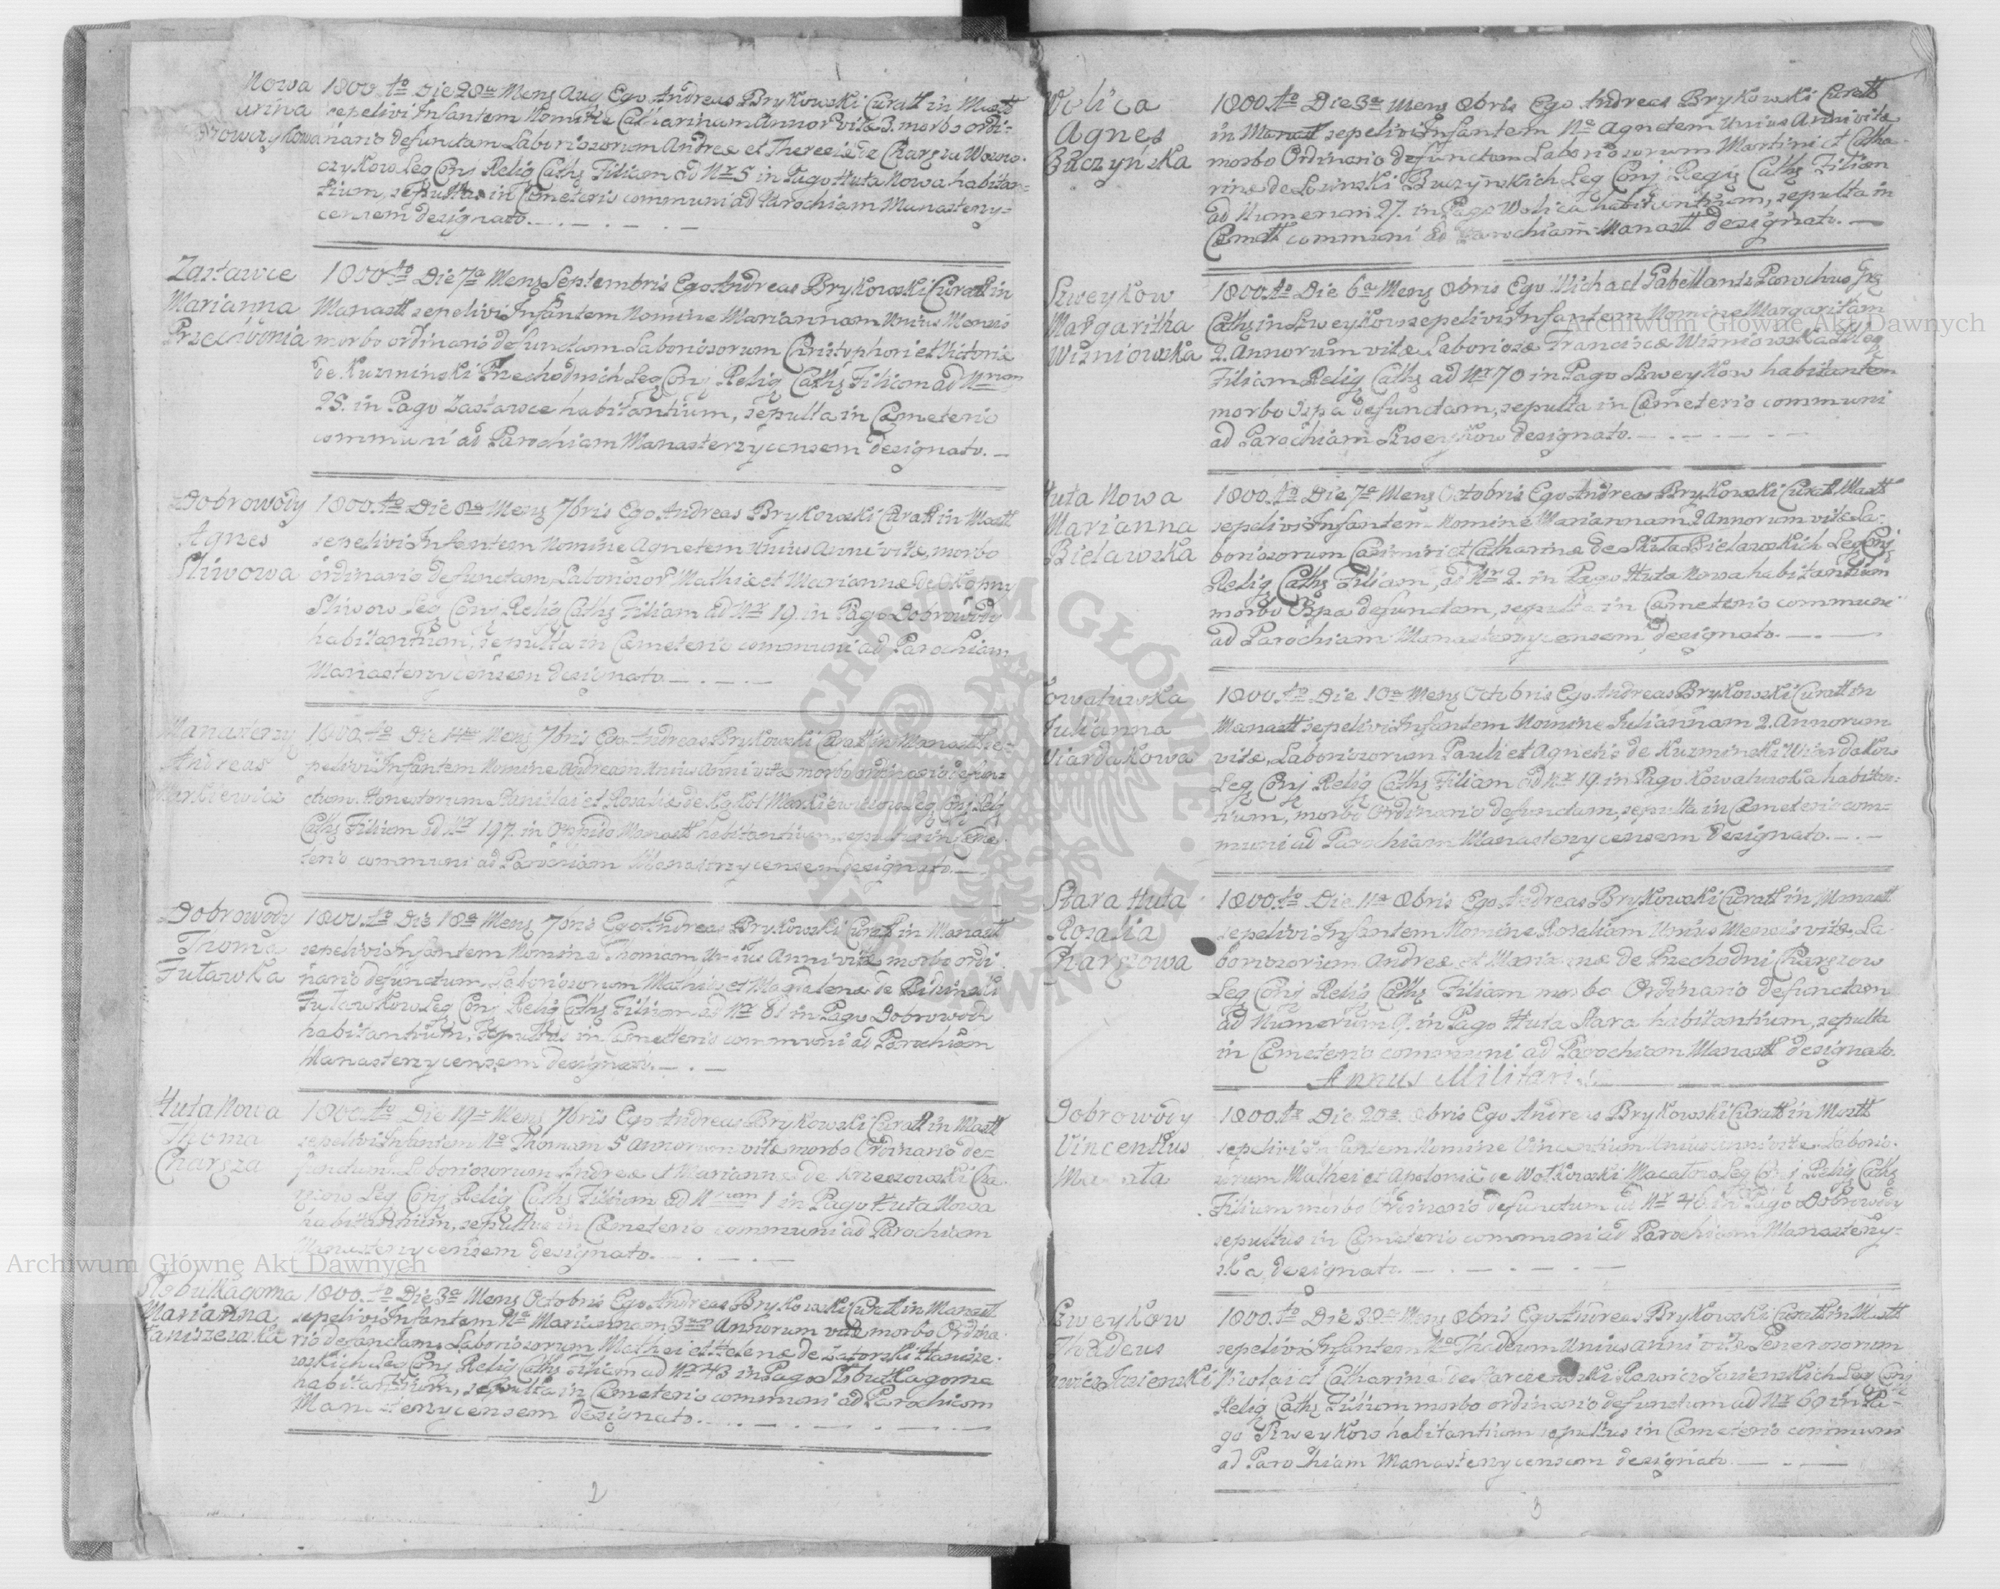 Nowa
arina
Nowaykowa
1800.to Die 28va Mens Aug Ego Andreas Brykowski Curatt in Mastt
sepelivi Infantem Nomine Catharinam Annor vitæ 3. morbo ordi-
nario defunctam Laboriosorum Andreæ et Theresiæ de Charsza Wowo-
czykow Leg Conj Relig Cath Filiam ad Nr 5 in Pago Huta Nowa habitan-
tium, sepulta in Cæmeterio communi ad Parochiam Manastery-
censem designato.
Zastawce
Marianna
Przechodnia
1800.to Die 7a Mens Septembris Ego Andreas Brykowski Curatt in
Manastt sepelivi Infantem Nomine Mariannam Unius Mensis
morbo ordinario defunctam Laboriosorum Christophori et Victoriæ
de Kuzminski Przechodnich Leg Conj Relig Cath Filiam ad Nrum
25. in Pago Zastawce habitantium, sepulta in Cæmeterio
communi ad Parochiam Manasterzycensem designato.
Dobrowody
Agnes
Sliwowa
1800.to Die 8a Mens 7bris Ego Andreas Brykowski Curatt in Mastt
sepelivi Infantem Nomine Agnetem Unius Anni vitæ, morbo
ordinario defunctam, Laboriosor Mathiæ et Mariannæ de
Sliwow Leg Conj Relig Cath Filiam ad Nr 19. in Pago Dobrowody
habitantium, sepulta in Cæmeterio communi ad Parochiam
Manasterzycensem designato.
Manasterz
Andreas
Markiewicz
1800.to Die 14ta Mens 7bris Ego Andreas Brykowski Curatt in Manastt se-
pelivi Infantem Nomine Andream Unius Anni vitæ morbo ordinario defun-
ctum Honestorum Stanislai et Rosaliæ de Leg Conj Relig
Cath Filium ad Nr 197. in Oppido Manastt habitantium, sepultus in Cæme-
terio communi ad Parochiam Manastrzycensem designato.
Dobrowody
Thoma
Tutawka
1800.to Die 18a Mens 7bris Ego Andreas Brykowski Curatt in Manastt
sepelivi Infantem Nomine Thomam Unius Anni vitæ morbo ordi
nario defunctum Laboriosorum Mathiæ et Magdalenæ de
Leg Conj Relig Cath Filium ad Nr 81 in Pago Dobrowody
habitantium, sepultus in Cæmeterio communi ad Parochiam
Manasterycensem designato.
Huta Nowa
Thoma
Charsza
1800.to Die 19na Mens 7bris Ego Andreas Brykowski Curatt in Mastt
sepelivi Infantem No Thomam 5 Annorum vitæ morbo Ordinario de-
functum Laboriosorum Andreæ et Mariannæ de Cha-
Leg Conj Relig Cath Filium ad Nrum 1 in Pago Huta Nowa
habitantium, sepultus in Cæmeterio communi ad Parochiam
Manasterzycensem designato.
Slobutkagorna
Marianna
Haniszewska
1800.to Die 3a Mens Octobris Ego Andreas Brykowski Curatt in Manastt
sepelivi Infantem Na Mariannam 3um Annorum vitæ morbo Ordina-
rio defunctam Laboriosorum Mathei et Helenæ de Zatorski Hanisze-
wskich Leg Conj Relig Cath Filiam ad Nr 43 in Pago Slobutkagorna
habitantium, sepulta in Cæmeterio communi ad Parochiam
Manasterycensem designato.
2
Wolica
Agnes
Baczynska
1800.to Die 3a Mens 8bris Ego Andreas Brykowski Curatt
in Manastt sepelivi Infantem No Agnetem Unius Anni vitæ
morbo Ordinario defunctam Laboriosorum Martini et Catha-
rinæ de Leg Conj Relig Cath Filiam
ad Numerum 27. in Pago Wolica habitantium, sepulta in
Cæmett communi ad Parochiam Manastt designato.
Szweykow
Margaritha
Wisniowska
1800.to Die 6a Mens 8bris Ego Michael Parochus
Cath in Szweykow sepelivi Infantem Nomine Margaritam
2. Annorum vitæ Laboriosæ Franciscæ Wisniowska
Filiam Relig Cath ad Nr 70 in Pago Szweykow habitantem
morbo Ospa defunctam, sepulta in Cæmeterio communi
ad Parochiam Szweykow designato.
Huta Nowa
Marianna
Bielawska
1800.to Die 7a Mens Octobris Ego Andreas Brykowski Curatt Mastt
sepelivi Infantem Nomine Mariannam 2 Annorum vitæ La-
boriosorum Casimiri et Catharinæ de Bielawskich Leg Conj
Relig Cath Filiam, ad Nr 2. in Pago Huta Nowa habitantium
morbo Ospa defunctam, sepulta in Cæmeterio communi
ad Parochiam Manasterzycensem designato.
Kowalowska
Julianna
Wiardakowa
1800.to Die 10a Mens Octobris Ego Andreas Brykowski Curatt in
Manastt sepelivi Infantem Nomine Juliannam 2. Annorum
vitæ, Laboriosorum Pauli et Agnetis de Kuzminski Wiardakow
Leg Conj Relig Cath Filiam ad Nr 19. in Pago Kowalowska habitan-
tium, morbo Ordinario defunctam, sepulta in Cæmeterio com-
muni ad Parochiam Manasterycensem designato.
Stara Huta
Rosalia
Charszowa
1800.to Die 11a 8bris Ego Andreas Brykowski Curatt in Manastt
sepelivi Infantem Nomine Rosaliam Unius Mensis vitæ, La-
boriosorum Andreæ et Mariannæ de Przechodni Charszow
Leg Conj Relig Cath Filiam morbo Ordinario defunctam
ad Numerum 9. in Pago Huta Stara habitantium, sepulta
in Cæmeterio communi ad Parochiam Manastt designato.
Annus Militaris
Dobrowody
Vincentius
1800.to Die 20a 8bris Ego Andreas Brykowski Curatt in Mastt
sepelivi Infantem Nomine Vincentium Unius Anni vitæ, Laborio-
sorum Mathei et Apoloniæ de Wotkowski Leg Conj Relig Cath
Filium morbo Ordinario defunctum ad Nr 46. in Pago Dobrowody
sepultus in Cæmeterio communi ad Parochiam Manastery-
ska designato.
Szweykow
Thadeus
1800.to Die 30a Mens 8bris Ego Andreas Brykowski Curatt in Mastt
sepelivi Infantem No Thadeum Unius anni vitæ Generosorum
Nicolai et Catharinæ de Leg Conj
Relig Cath Filium morbo ordinario defunctum ad Nr 60 in Pa-
go Szweykow habitantium sepultus in Cæmeterio communi
ad Parochiam Manasterycensem designato
3
Archiwum Główne Akt Dawnych
Archiwum Główne Akt Dawnych
ARCHIWUM GŁÓWNE AKT DAWNYCH